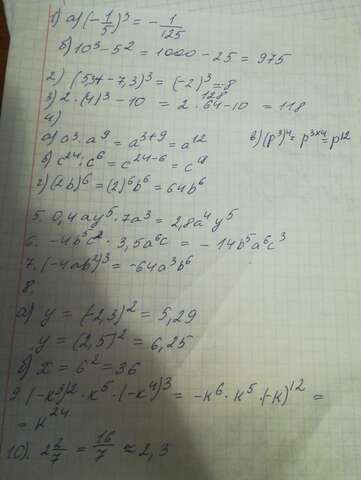 1) а) (-1/5)³ = -1/125
б) 10³ - 5² = 1000 - 25 = 975
2) (5,3 - 7,3)³ = (-2)³ = -8
3) 2·(4)³ - 10 = 2·64 - 10 = 118
128
4)
а) a³·a⁹ = a³⁺⁹ = a¹² в) (p³)⁴ = p³ˣ⁴ = p¹²
б) c²⁴:c⁶ = c²⁴⁻⁶ = c¹⁸
г) (2b)⁶ = (2)⁶b⁶ = 64b⁶
5. 0,4ay⁵·7a³ = 2,8a⁴y⁵
6. -4b⁵c²·3,5a⁶c = -14b⁵a⁶c³
7. (-4ab²)³ = -64a³b⁶
8.
а) y = (-2,3)² = 5,29
y = (2,5)² = 6,25
б) x = 6² = 36
9. (-к³)²·к⁵·(-к⁴)³ = -к⁶·к⁵·(-к)¹² =
= к²⁴
10). 2 2/7 = 16/7 ≈ 2,3